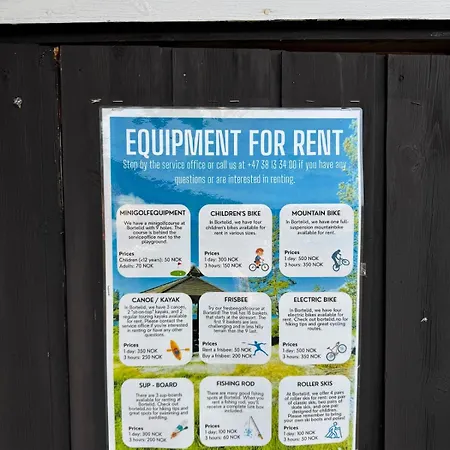 EQUIPMENT FOR RENT
Stop by the service office or call us at +47 38 13 34 00 if you have any
questions or are interested in renting.
MINIGOLFEQUIPMENT
We have a minigolfcourse at
Bortelid with 9 holes. The
course is behind the
serviceoffice next to the
playground.
Prices
Children (<12 years): 50 NOK
Adults: 70 NOK
CHILDREN'S BIKE
In Bortelid, we have four
children's bikes available for
rent in various sizes.
Prices
1 day: 300 NOK
3 hours: 150 NOK
MOUNTAIN BIKE
In Bortelid, we have one full-
suspension mountainbike
available for rent.
Prices
1 day: 500 NOK
3 hours: 350 NOK
CANOE / KAYAK
In Bortelid, we have 3 canoes,
2 "sit-on-top" kayaks, and 2
regular touring kayaks available
for rent. Please contact the
service office if you're interested
in renting or have any other
questions.
Prices
1 day: 350 NOK
3 hours: 250 NOK
FRISBEE
Try our freebeegolfcourse at
Bortelid! The trail has 18 baskets
that starts at the skiresort. The
first 9 baskets are less
challenging and in less hilly
terrain than the 9 last.
Prices
Rent a frisbee: 30 NOK
Buy a frisbee: 200 NOK
ELECTRIC BIKE
In Bortelid, we have four
electric bikes available for
rent. Check out bortelid.no for
hiking tips and great cycling
routes.
Prices
1 day: 500 NOK
3 hours: 350 NOK
SUP - BOARD
There are 3 sup-boards
available for renting at
Bortelid. Check out
bortelid.no for hiking tips and
great spots for swimming and
paddling.
Prices
1 day: 300 NOK
3 hours: 200 NOK
FISHING ROD
There are many good fishing
spots at Bortelid. When you
rent a fishing rod, you'll
receive a complete lure box
included.
Prices
1 day: 100 NOK
3 hours: 60 NOK
ROLLER SKIS
At Bortelid, we offer 4 pairs
of roller skis for rent: one pair
of classic skis, two pairs of
skate skis, and one pair
designed for children.
Please remember to bring
your own ski boots and poles!
Prices
1 day: 100 NOK
3 hours: 50 NOK